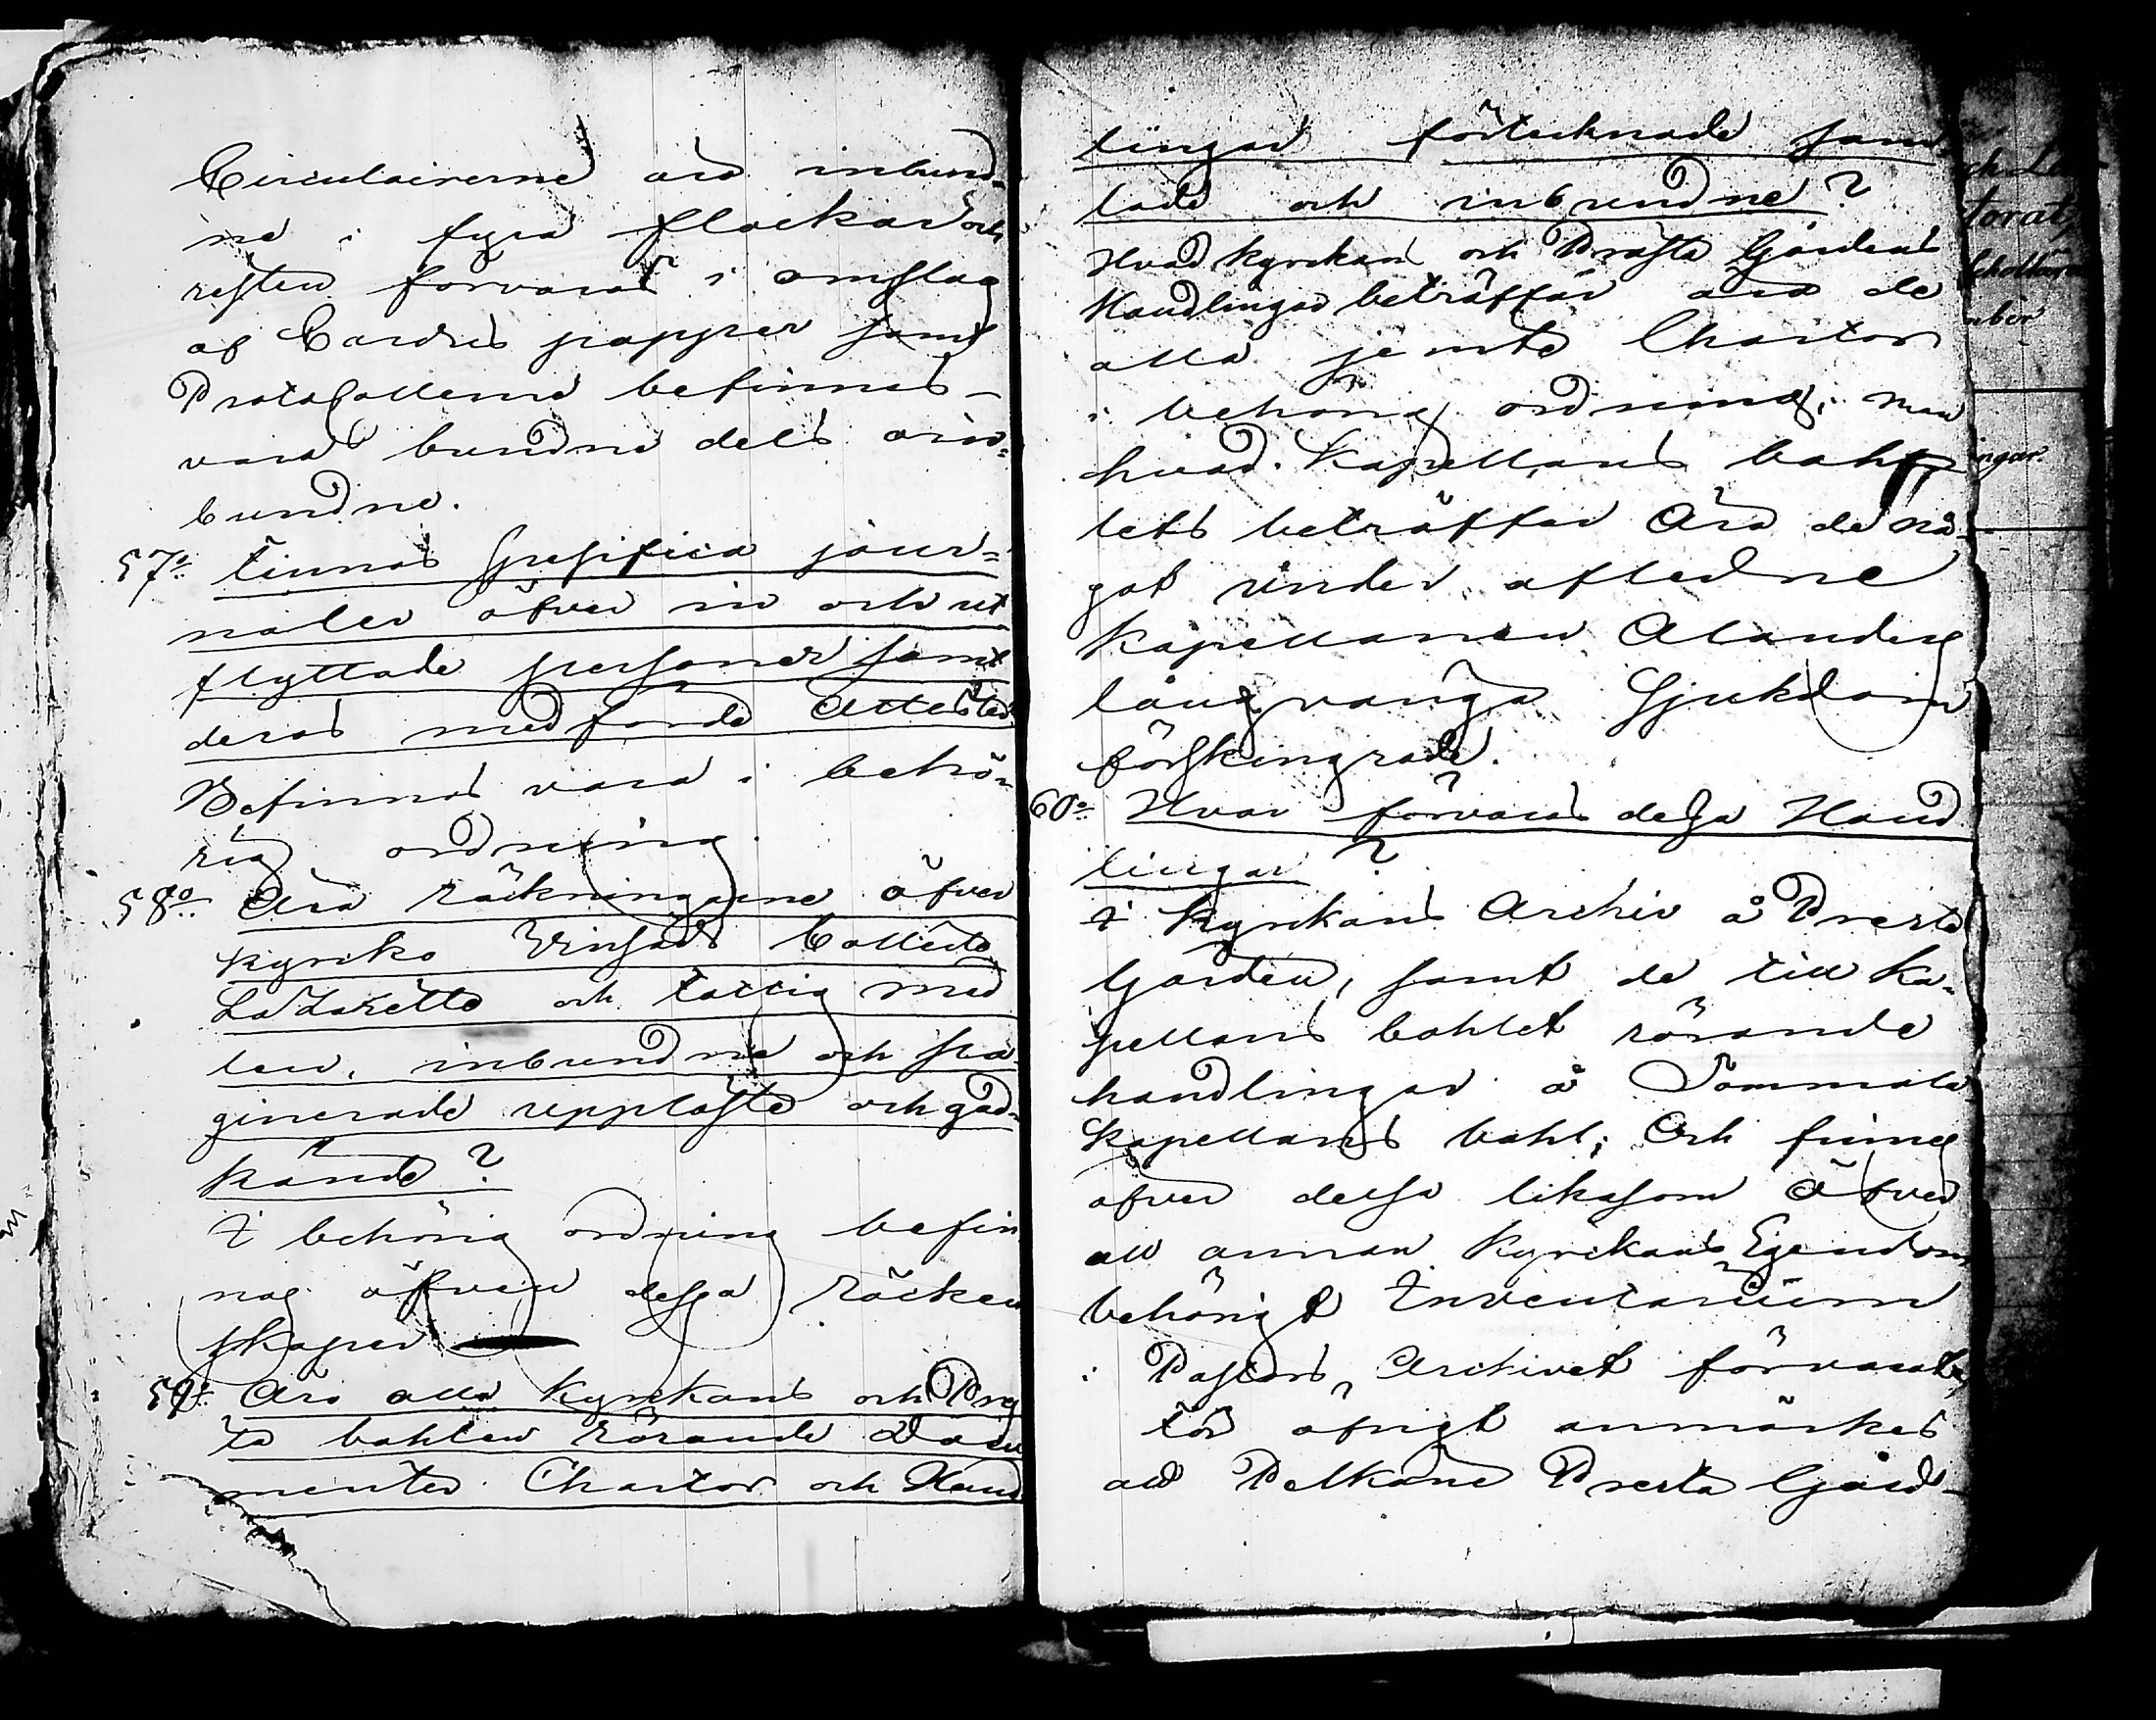 Circulairerne äro inbund-
ne i fyra flockar och
resten förvaras i omslag
af Cardus papper samt
Protocollerne befinnes
vara bundne dels oin=
bundne.
57:o Finnas specifica jour=
naler öfver in och ut
flyttade personer samt
deras medförde Attester
Befinnes vara i behö-
rig ordning.
58:o Äro räkningarne öfver
kyrko Vinsäds Collect
Lazaretts och Fattig med
len, inbundne och pa
ginerade uppläste och god-
kände?
I behörig ordning befin
nas äfven dessa räken
skaper
59:o Äro alla Kyrkans och Pre
sta bohlen rörande Docu
menter Chartor och Hand
lingar förtecknade sam-
lade och inbundne?
Hvad kyrkans och Prästa Gårdens
Handlingar beträffar äro de
alla jemte Chartor
i behörig ordning; men
hvad Kapellans bohl
lets beträffar Äro de nå-
got under aflidne
Kapellanen Alanders
långvariga Sjukdom
förskingrade.
60:o Hvar förvaras dessa Hand
lingar?
I Kyrkans Archiv å Prest
Gården, samt de till Ka-
pellans bohlet rörande
handlingar å Sommola
Kapellans bohl; Och finnes
öfver dessa likasom Äfven
all annan Kyrkans Egendom
behörigt Inventarium
i Pastors Archivet förvarat,
För öfrigt anmärkes
att Pelkäne Presta Gård-